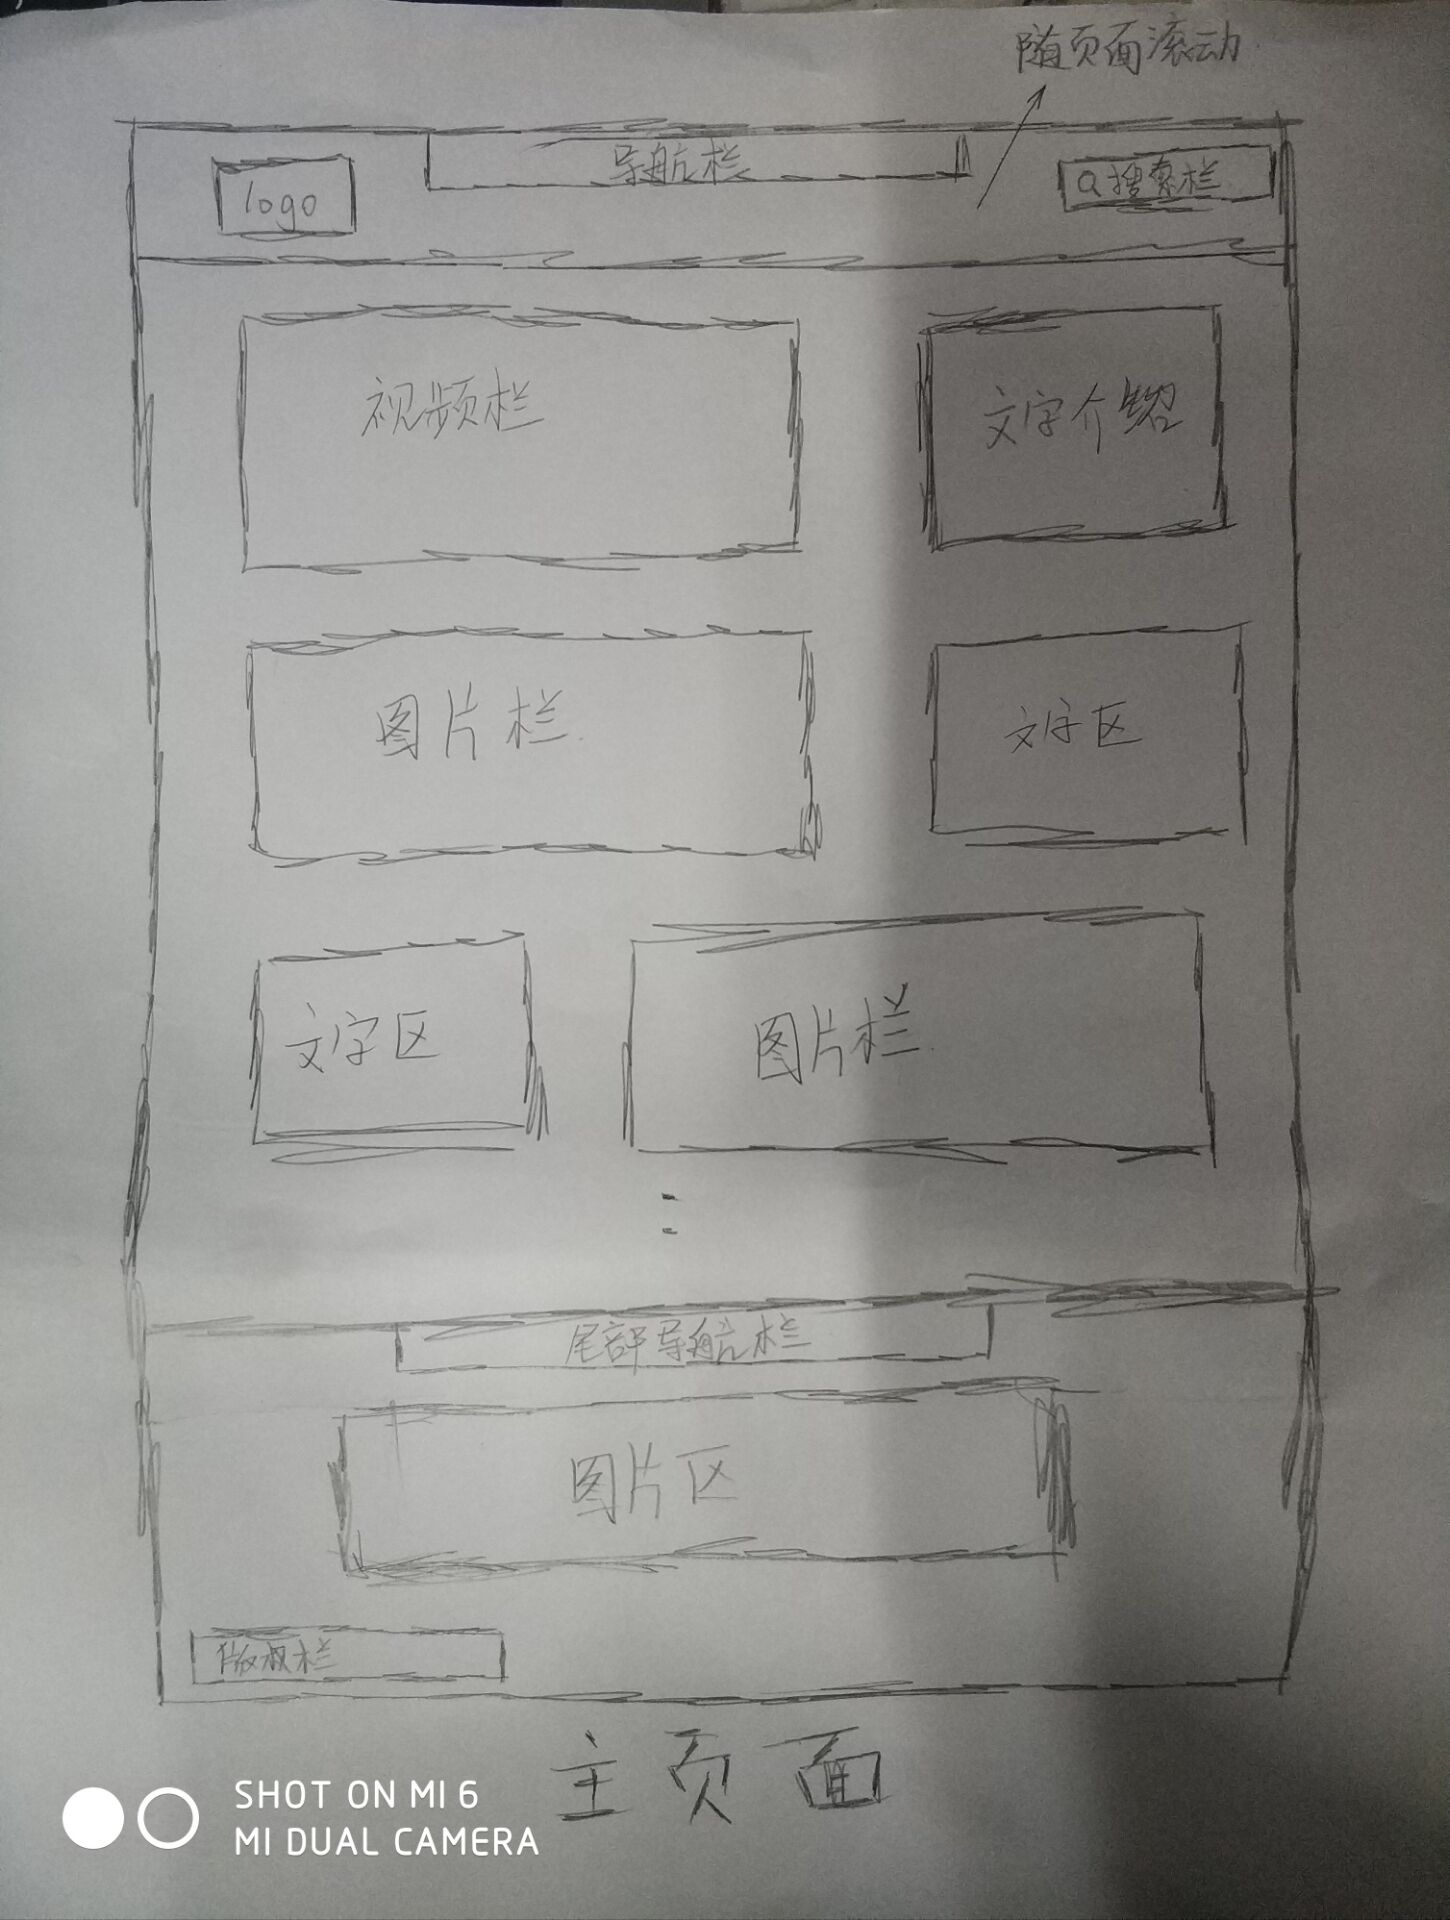 随页面滚动
导航栏
logo
Q搜索栏
视频栏
文字介绍
图片栏
文字区
文字区
图片栏
尾部导航栏
图片区
版权栏
主页面
SHOT ON MI 6
MI DUAL CAMERA